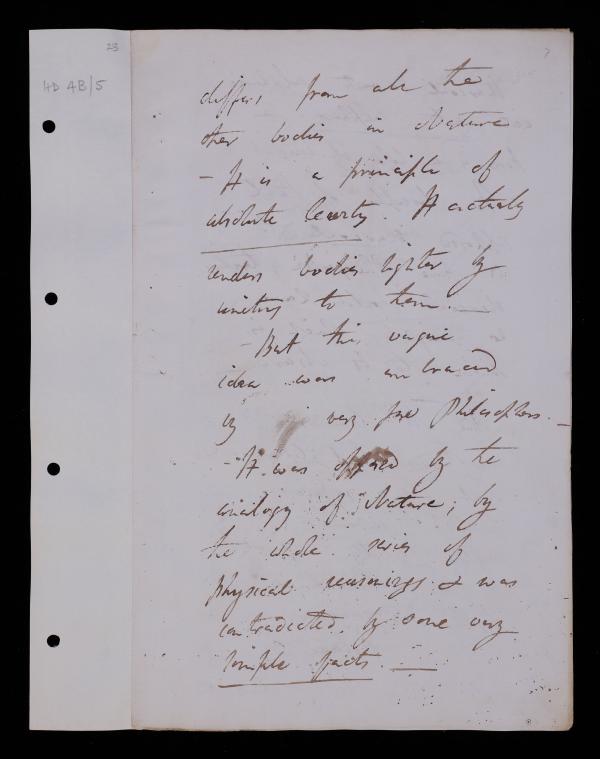 23
HD 4B/5
7
differs from all the
other bodies in Nature
- It is a principle of
absolute levity. It actually
renders bodies lighter by
uniting to them. —
But this vague
idea was embraced
by very few Philosophers. —
- It was opposed by the
analogy of Nature; by
the whole series of
physical reasonings & was
contradicted by some very
simple facts. —